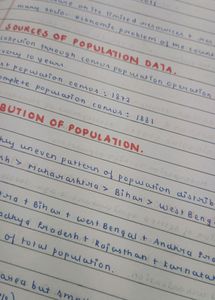 on its limited resources +
many socio-economic problem of the coun
SOURCES OF POPULATION DATA.
through census population operation
every 10 years
st population census : 1872
complete population census : 1881
BUTION OF POPULATION.
hly uneven pattern of population distrib
sh > Maharashtra > Bihar > West Beng
tra + Bihar + West Bengal + Andhra Pra
adhya Pradesh + Rajasthan + Karnata
of total population.
area but sma